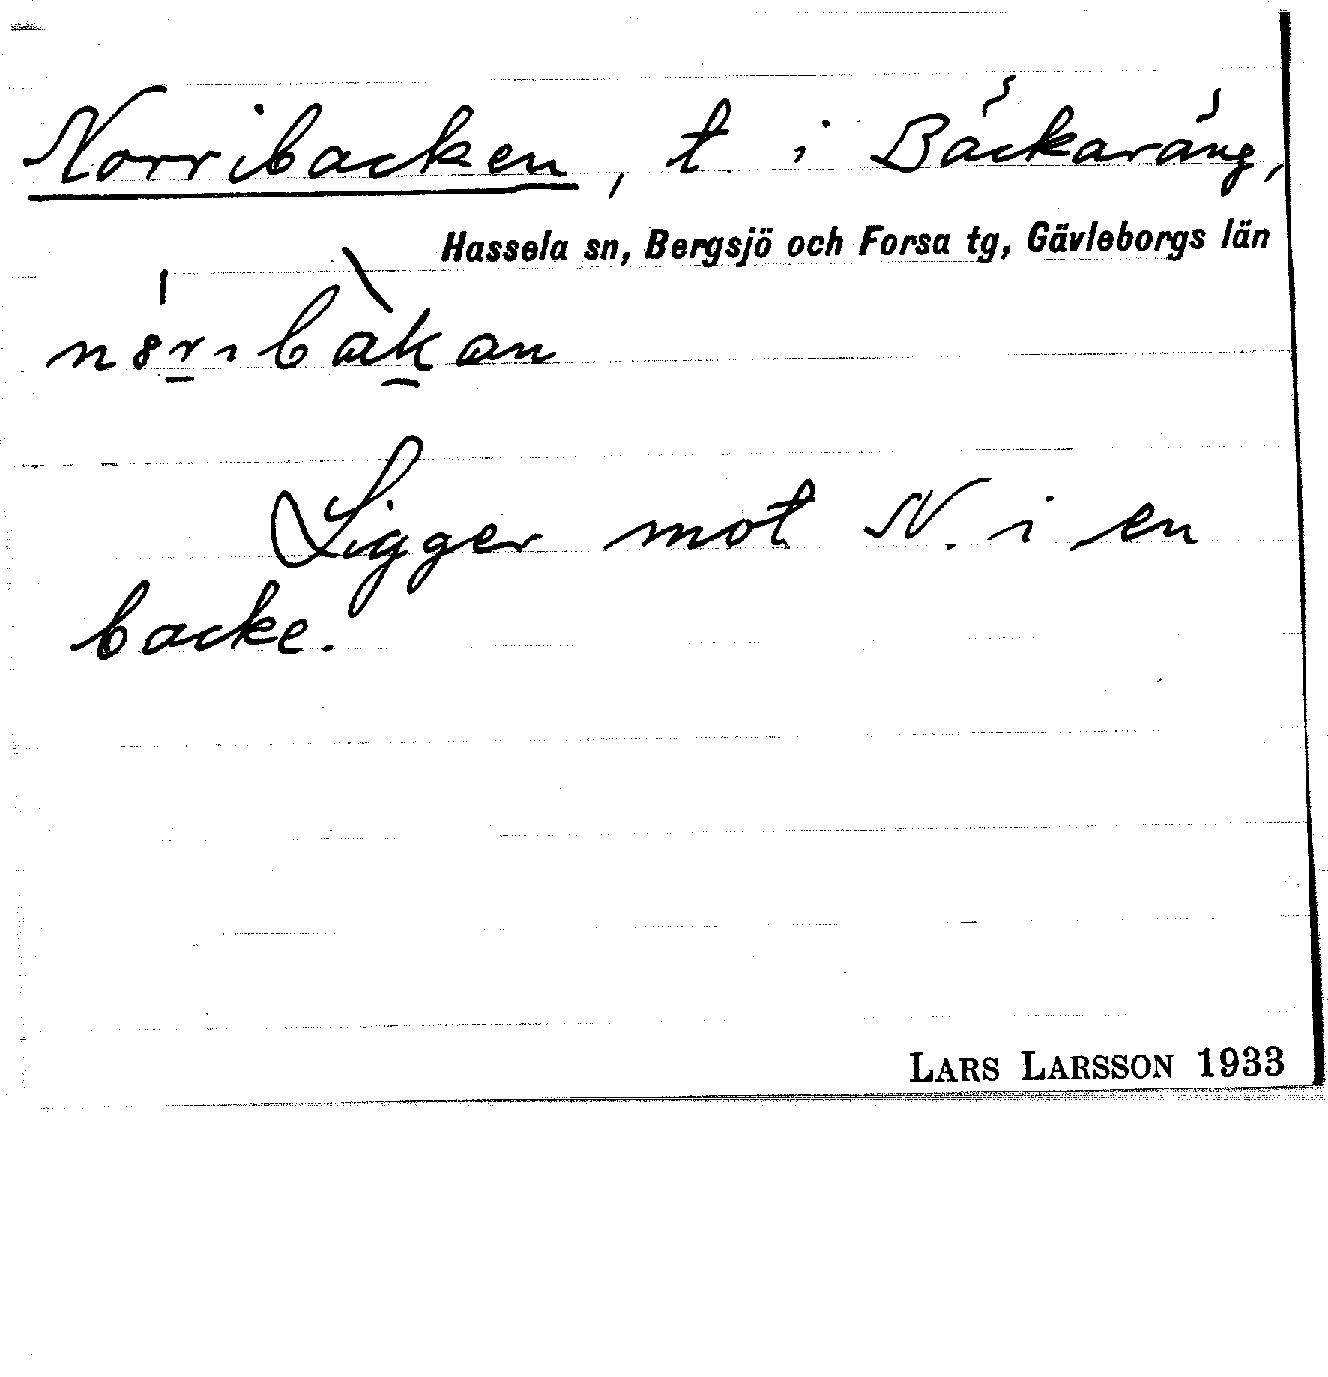 Norribacken, t i Bäckaräng,
Hassela sn, Bergsjö och Forsa tg, Gävleborgs län
Ligger mot N. i en
backe.
LARS LARSSON 1933